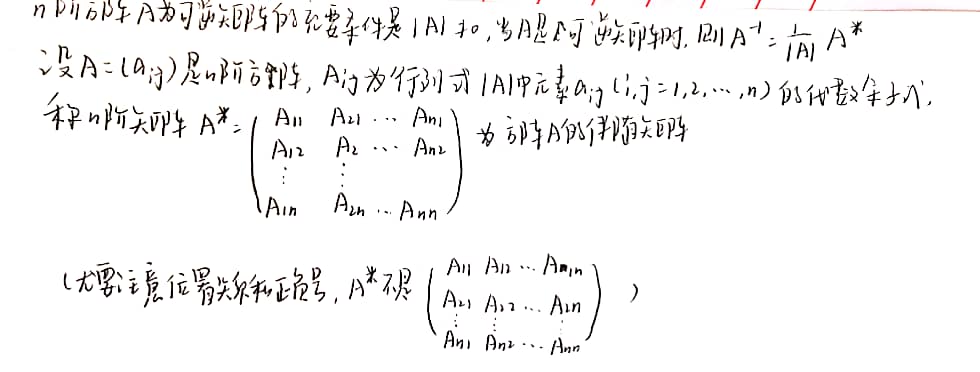 n阶方阵A为可逆矩阵的充要条件是|A|≠0,当A是可逆矩阵时,则A⁻¹=1/|A| A*
设A=(aij)是n阶方阵,Aij为行列式|A|中元素aij(i,j=1,2,…,n)的代数余子式,
称n阶矩阵A*=(A11 A21 … An1 为方阵A的伴随矩阵
A12 A2 … An2
⋮ ⋮
A1n A2n … Ann)
(尤要注意位置关系和正负号,A*不是(A11 A12 … A1n
A21 A22 … A2n
⋮ ⋮ ⋮
An1 An2 … Ann) )